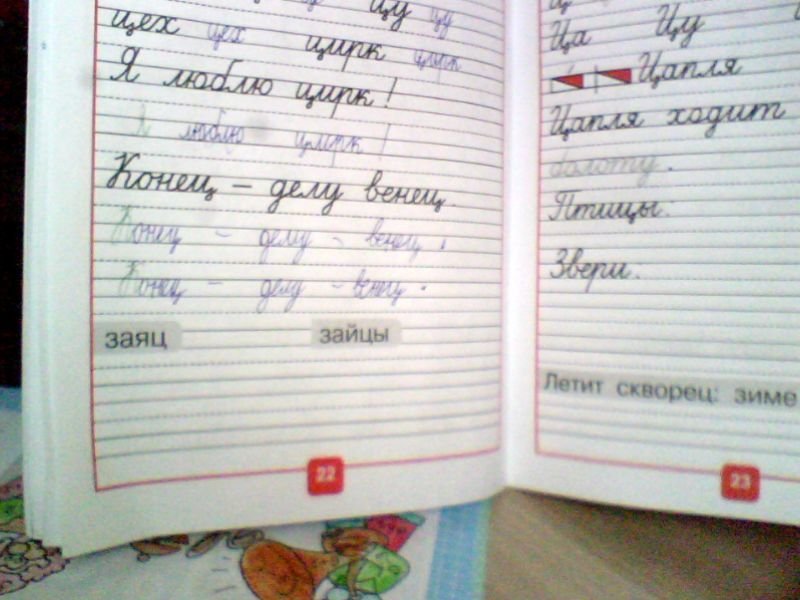 цу цу
цех цех цирк цирк
Я люблю цирк!
Я люблю цирк!
Конец – делу венец.
Конец – делу – венец.
Конец – делу – венец.
заяц зайцы
22
Ца Цу
Цапля
Цапля ходит
болоту.
Птицы:
Звери.
Летит скворец: зиме
23